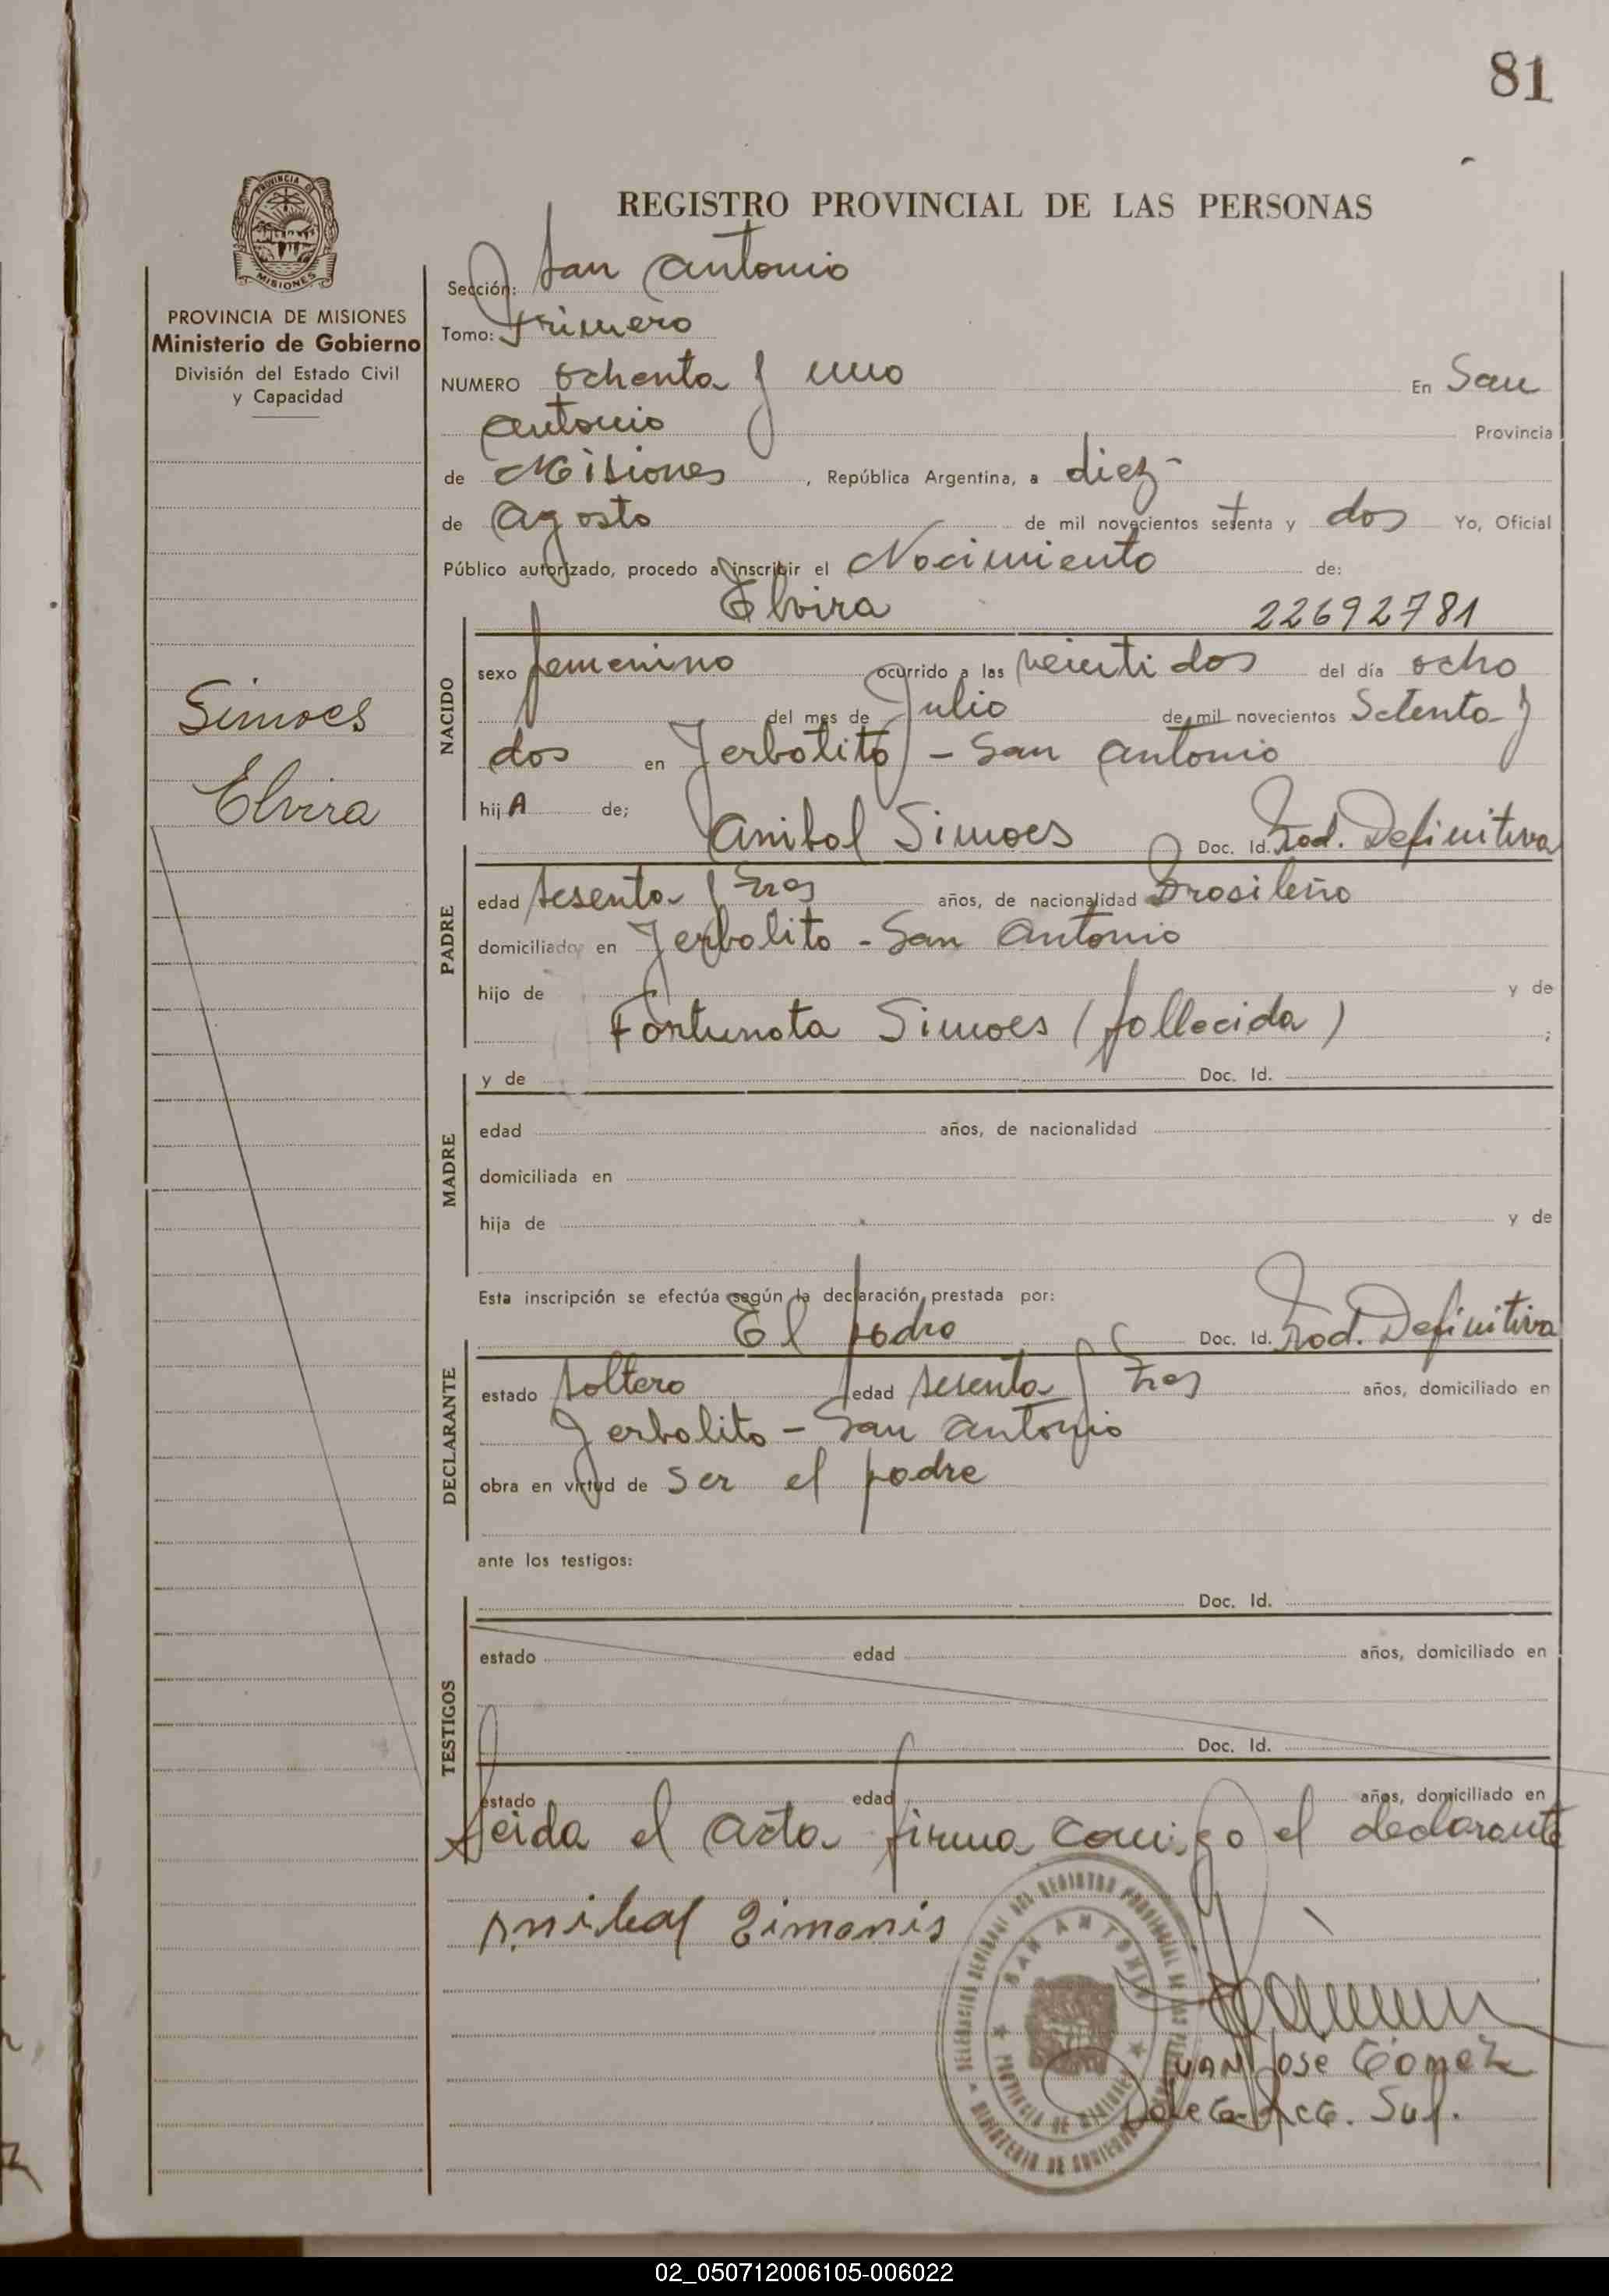 81
REGISTRO PROVINCIAL DE LAS PERSONAS
PROVINCIA DE
MISIONES
PROVINCIA DE MISIONES
Ministerio de Gobierno
División del Estado Civil
y Capacidad
Simoes
Elvira
Sección: San Antonio
Tomo: Primero
NUMERO ochenta y uno En San
Antonio Provincia
de Misiones, República Argentina, a diez-
de Agosto de mil novecientos setenta y dos Yo, Oficial
Público autorizado, procedo a inscribir el Nacimiento de:
Elvira 22692781
NACIDO
sexo femenino ocurrido a las veinti dos del día ocho
del mes de Julio de mil novecientos Setenta y
dos en Yerbalito - San Antonio
hijA de;
Anibal Simoes Doc. Id. Rad. Definitiva
PADRE
edad sesenta y tres años, de nacionalidad Brasileño
domiciliado en Yerbalito - San Antonio
hijo de y de
Fortunata Simoes (fallecida) ;
MADRE
y de Doc. Id.
edad años, de nacionalidad
domiciliada en
hija de y de
Esta inscripción se efectúa según la declaración prestada por:
El padre Doc. Id. Rad. Definitiva
DECLARANTE
estado soltero edad sesenta y tres años, domiciliado en
Yerbalito - San Antonio
obra en virtud de ser el padre
ante los testigos:
TESTIGOS
Doc. Id.
estado edad años, domiciliado en
Doc. Id.
estado edad años, domiciliado en
Leida el acta firma conmigo el declarante
Anibal Simonis
SAN ANTONIO
PROVINCIA DE MISIONES
JUAN JOSE GOMEZ
02_050712006105-006022